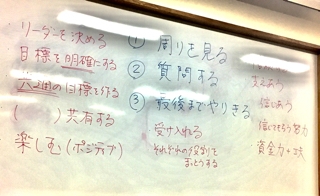 リーダーを決める
目標を明確にする
の目標を作る
(　　)共有する
楽しむ(ポジティブ)
① 周りを見る
② 質問する
③ 最後までやりきる
受け入れる
それぞれの役割を
まっとうする
支えあう
信じあう
信じてもらう努力
資金力